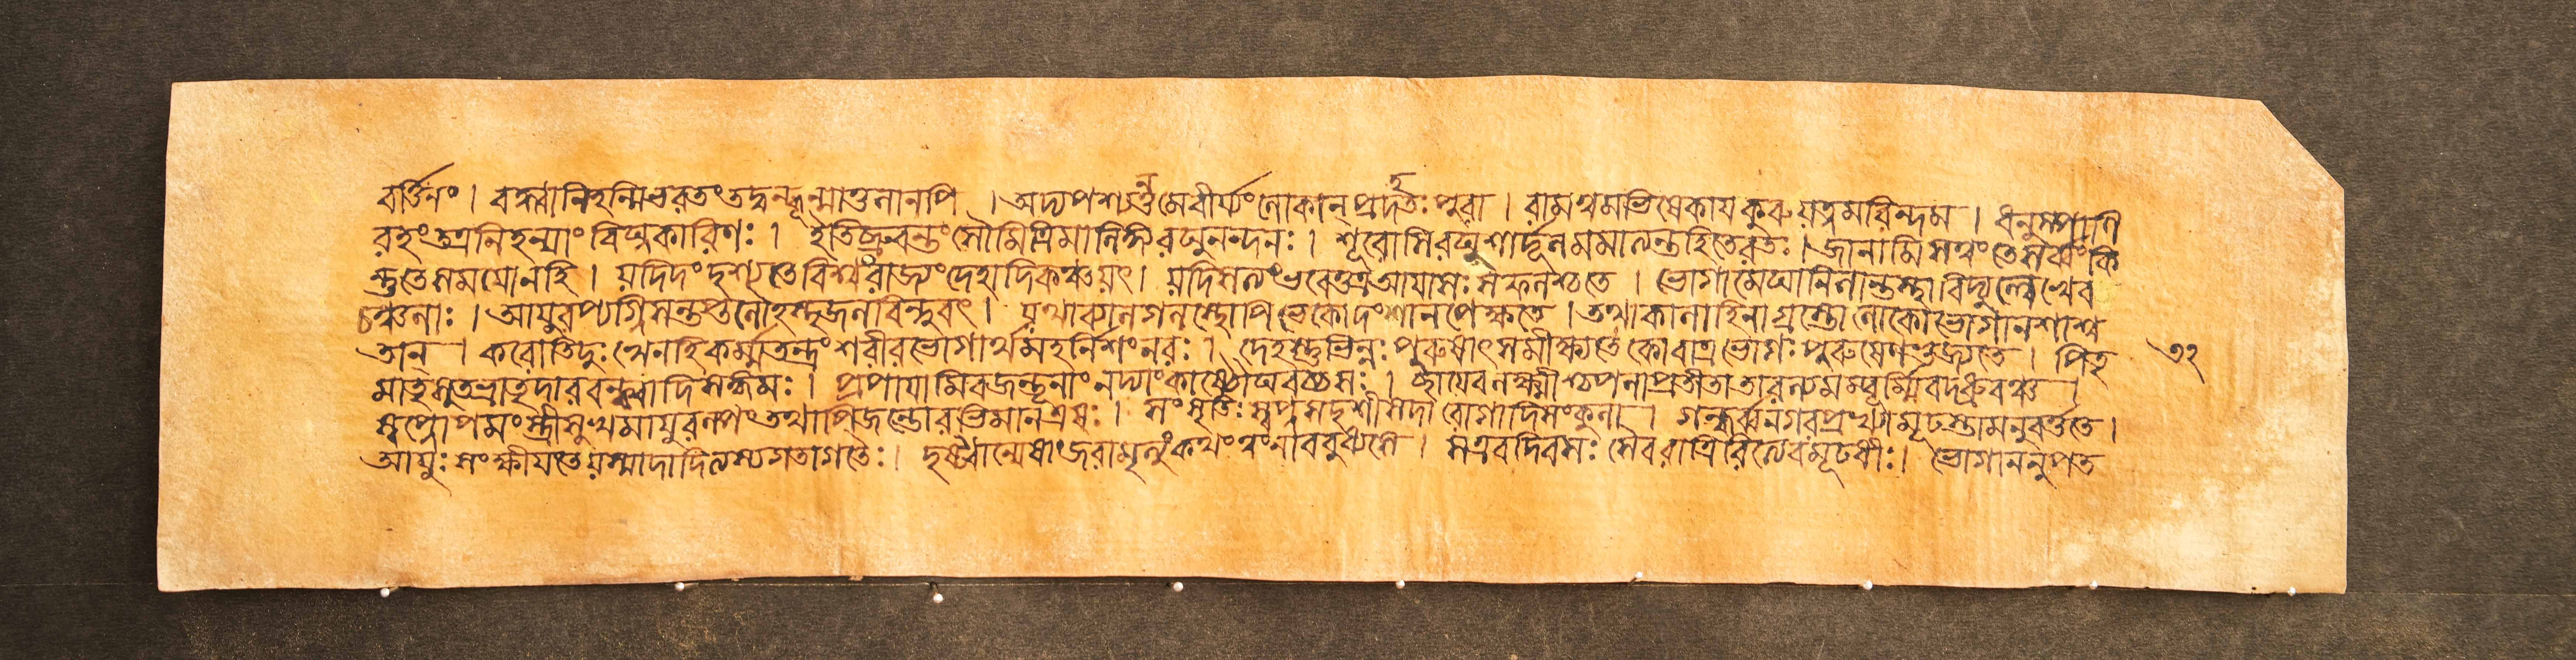 বর্ত্তিনং । বদ্ধ্বানিহন্মিভরতংতদ্বন্ধূন্মাতুলানপি । অদ্যপশ্যন্তুমেবীর্য্যংলোকান্ প্রদহতঃপুরা । রামত্বমভিষেকায়কুরুয়ত্নমরিন্দম । ধনুষ্পাণি
রহংতত্রনিহন্মাংবিঘ্নকারিণঃ । ইতিব্রুবন্তংসৌমিত্রিমালিঙ্গ্যরঘুনন্দনঃ । শূরোসিরঘুশার্দ্দূলমমাত্যন্তহিতেরতঃ । জানামিসত্বংতেসর্ব্বংকি
ন্তুতেসময়োনহি । য়দিদংদৃশ্যতেবিশ্বংরাজ্যংদেহাদিকঞ্চয়ৎ । য়দিসত্যংভবেত্তত্রআয়াসঃসফলশ্চতে । ভোগামেঘবিতানস্থাবিদ্যুল্লেখেব
চঞ্চলাঃ । আয়ুরপ্যগ্নিসন্তপ্তলৌহস্থজলবিন্দুবৎ । য়থাব্যালগলস্থোপিভেকোদংশানপেক্ষতে । তথাকালাহিনাগ্রস্তোলোকোভোগানশাশ্ব
তান্ । করোতিদুঃখেনহিকর্ম্মতন্ত্রংশরীরভোগার্থমহর্নিশংনরঃ । দেহস্তুভিন্নঃপুরুষাৎসমীক্ষ্যতেকোবাত্রভোগঃপুরুষেণভুজ্যতে । পিতৃ
৩২
মাতৃসুতভ্রাতৃদারবন্ধ্বাদিসঙ্গমঃ । প্রপায়ামিবজন্তূনাংনদ্যাংকাষ্ঠৌঘবচ্চলঃ । ছায়েবলক্ষ্মীশ্চপলাপ্রতীতাতারুণ্যমম্বূর্ম্মিবদধ্রুবঞ্চ ।
স্বপ্নোপমংস্ত্রীসুখমায়ুরল্পংতথাপিজন্তোরভিমানএষঃ । সংসৃতিঃস্বপ্নসদৃশীসদারোগাদিসংকুলা । গন্ধর্ব্বনগরপ্রখ্যামূঢস্তামনুবর্ত্ততে ।
আয়ুঃসংক্ষীয়তেয়স্মাদাদিত্যস্যগতাগতৈঃ । দৃষ্ট্বান্যেষাংজরামৃত্যুংকথংত্বংনাববুধ্যসে । সএবদিবসঃসৈবরাত্রিরিত্যেবমূঢধীঃ । ভোগাননুপত